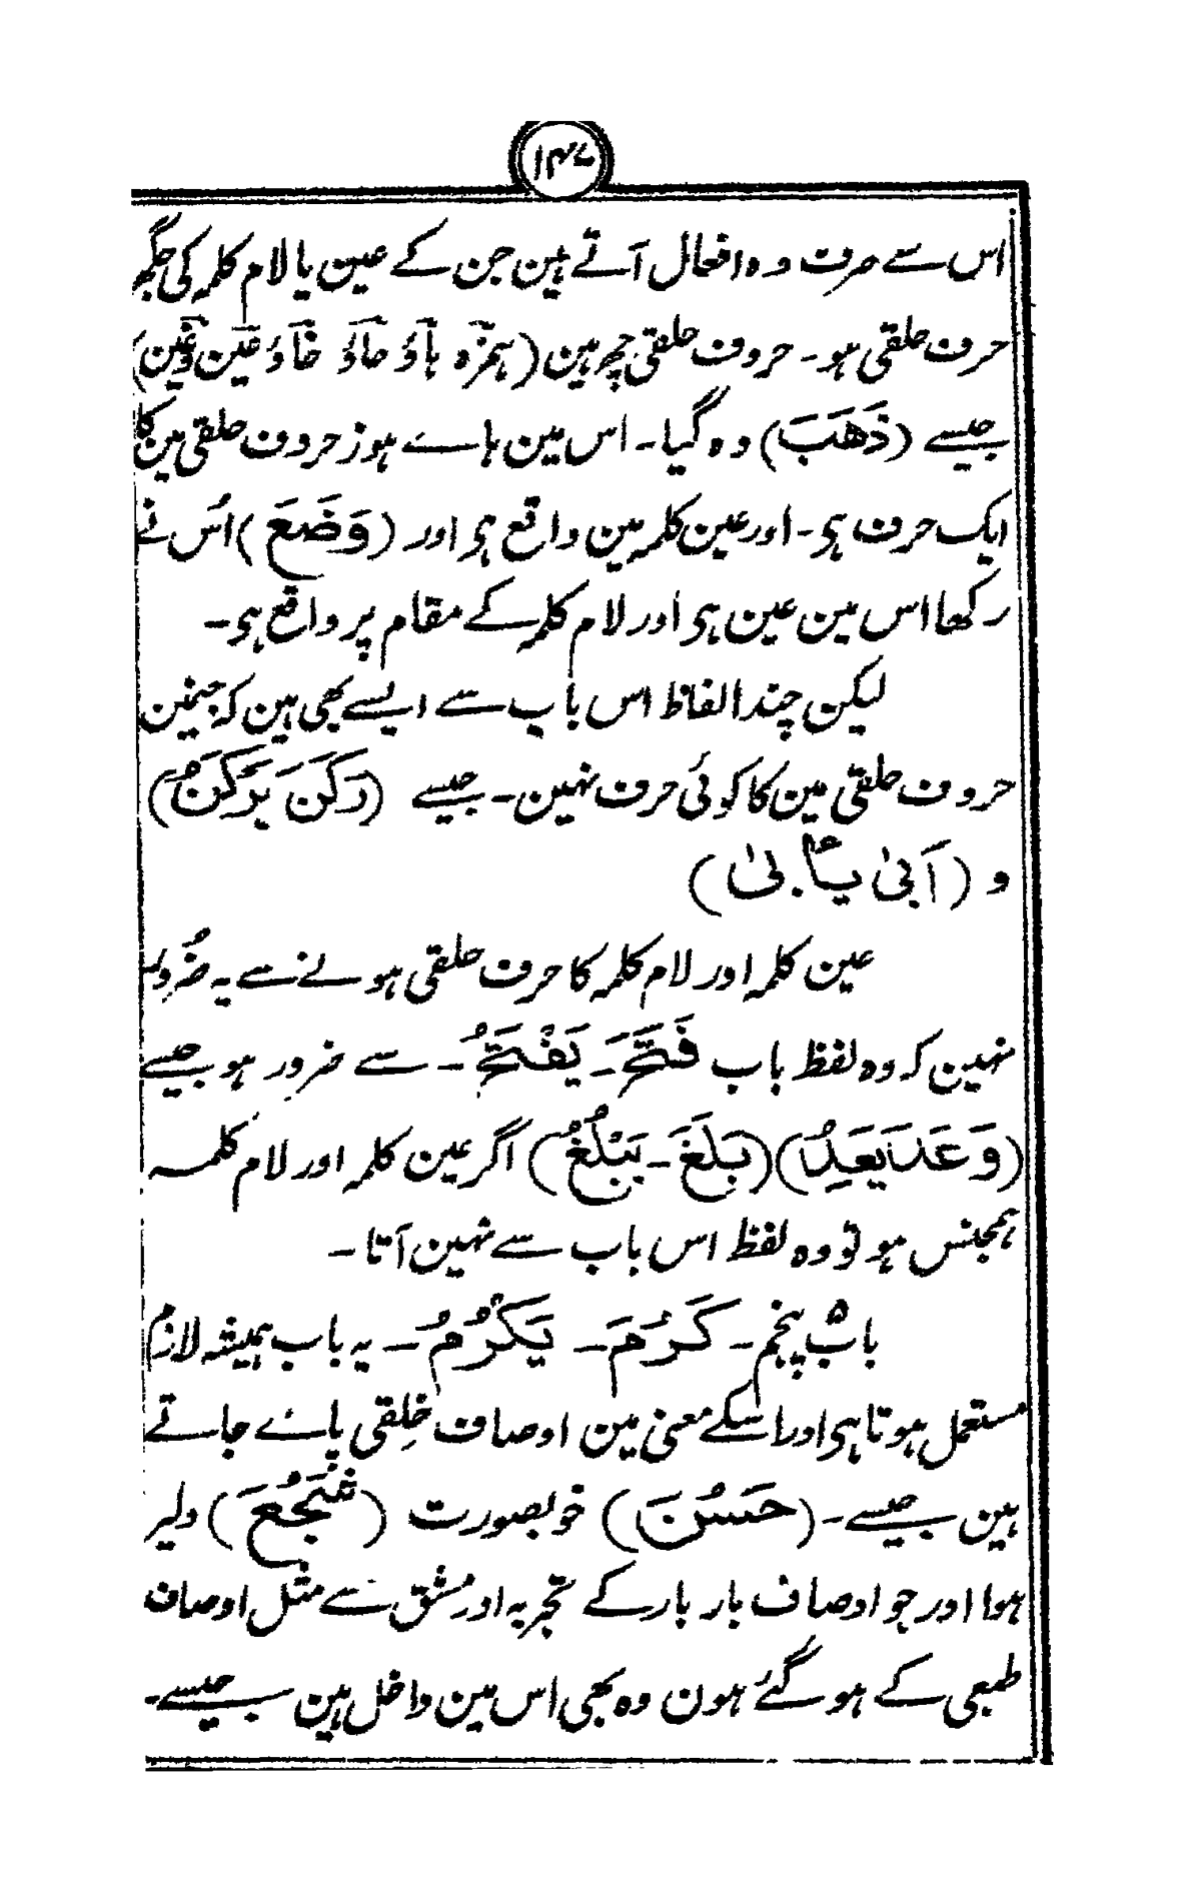 ۱۴۷
اس سے صرف وہ افعال آتے ہین جن کے عین یا لام کلمہ کی جگھ
حرف حلقی ہو۔ حروف حلقی چھ ہین (ہمزہ ہاؤ حاؤ خاؤ عین وغین)
جیسے (ذَهَبَ) وہ گیا۔ اس مین ہاے ہوز حروف حلقی مین کا
ایک حرف ہی۔ اور عین کلمہ مین واقع ہی اور (وَضَعَ) اُس نے
رکھا اس مین عین ہی اور لام کلمہ کے مقام پر واقع ہی۔
لیکن چند الفاظ اس باب سے ایسے بھی ہین کہ جنمین
حروف حلقی مین کا کوئی حرف نہین۔ جیسے (رَكَنَ يَرْكَنُ)
و (اَبیٰ یَاْبیٰ)
عین کلمہ اور لام کلمہ کا حرف حلقی ہونے سے یہ
نہین کہ وہ لفظ باب فَتَحَ۔ يَفْتَحُ۔ سے ضرور ہو جیسے
(وَعَدَ يَعِدُ) (بَلَغَ۔ يَبْلُغُ) اگر عین کلمہ اور لام کلمہ
ہمجنس ہو تو وہ لفظ اس باب سے نہین آتا۔
باب ۵ پنجم۔ كَرُمَ۔ يَكْرُمُ۔ یہ باب ہمیشہ لازم
مستعمل ہوتا ہی اور اسکے معنی مین اوصاف خِلقی پائے جاتے
ہین جیسے۔ (حَسُنَ) خوبصورت (شَجُعَ) دلیر
ہوا اور جو اوصاف بار بار کے تجربہ اور مشق سے مثل اوصاف
طبعی کے ہو گئے ہون وہ بھی اس مین داخل ہین جیسے۔